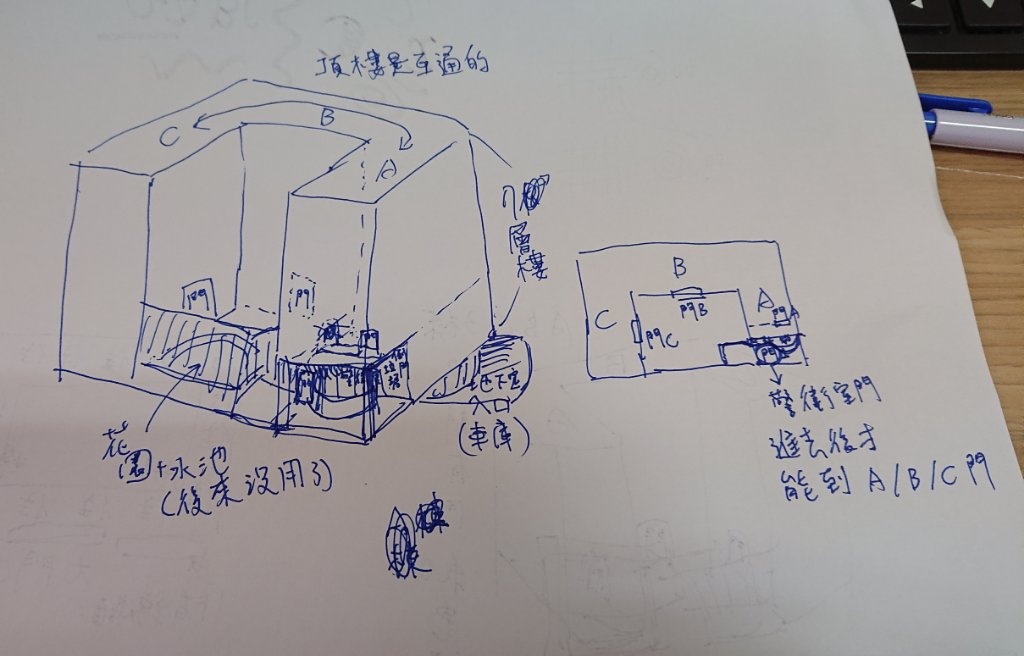 頂樓是互通的
C
B
A
八
層
樓
門
門
門
門
地下室
入口
(車庫)
花
園+水池
(後來沒用了)
B
C
A
門B
門C
門A
門
警衛室門
進去後才
能到 A/B/C門